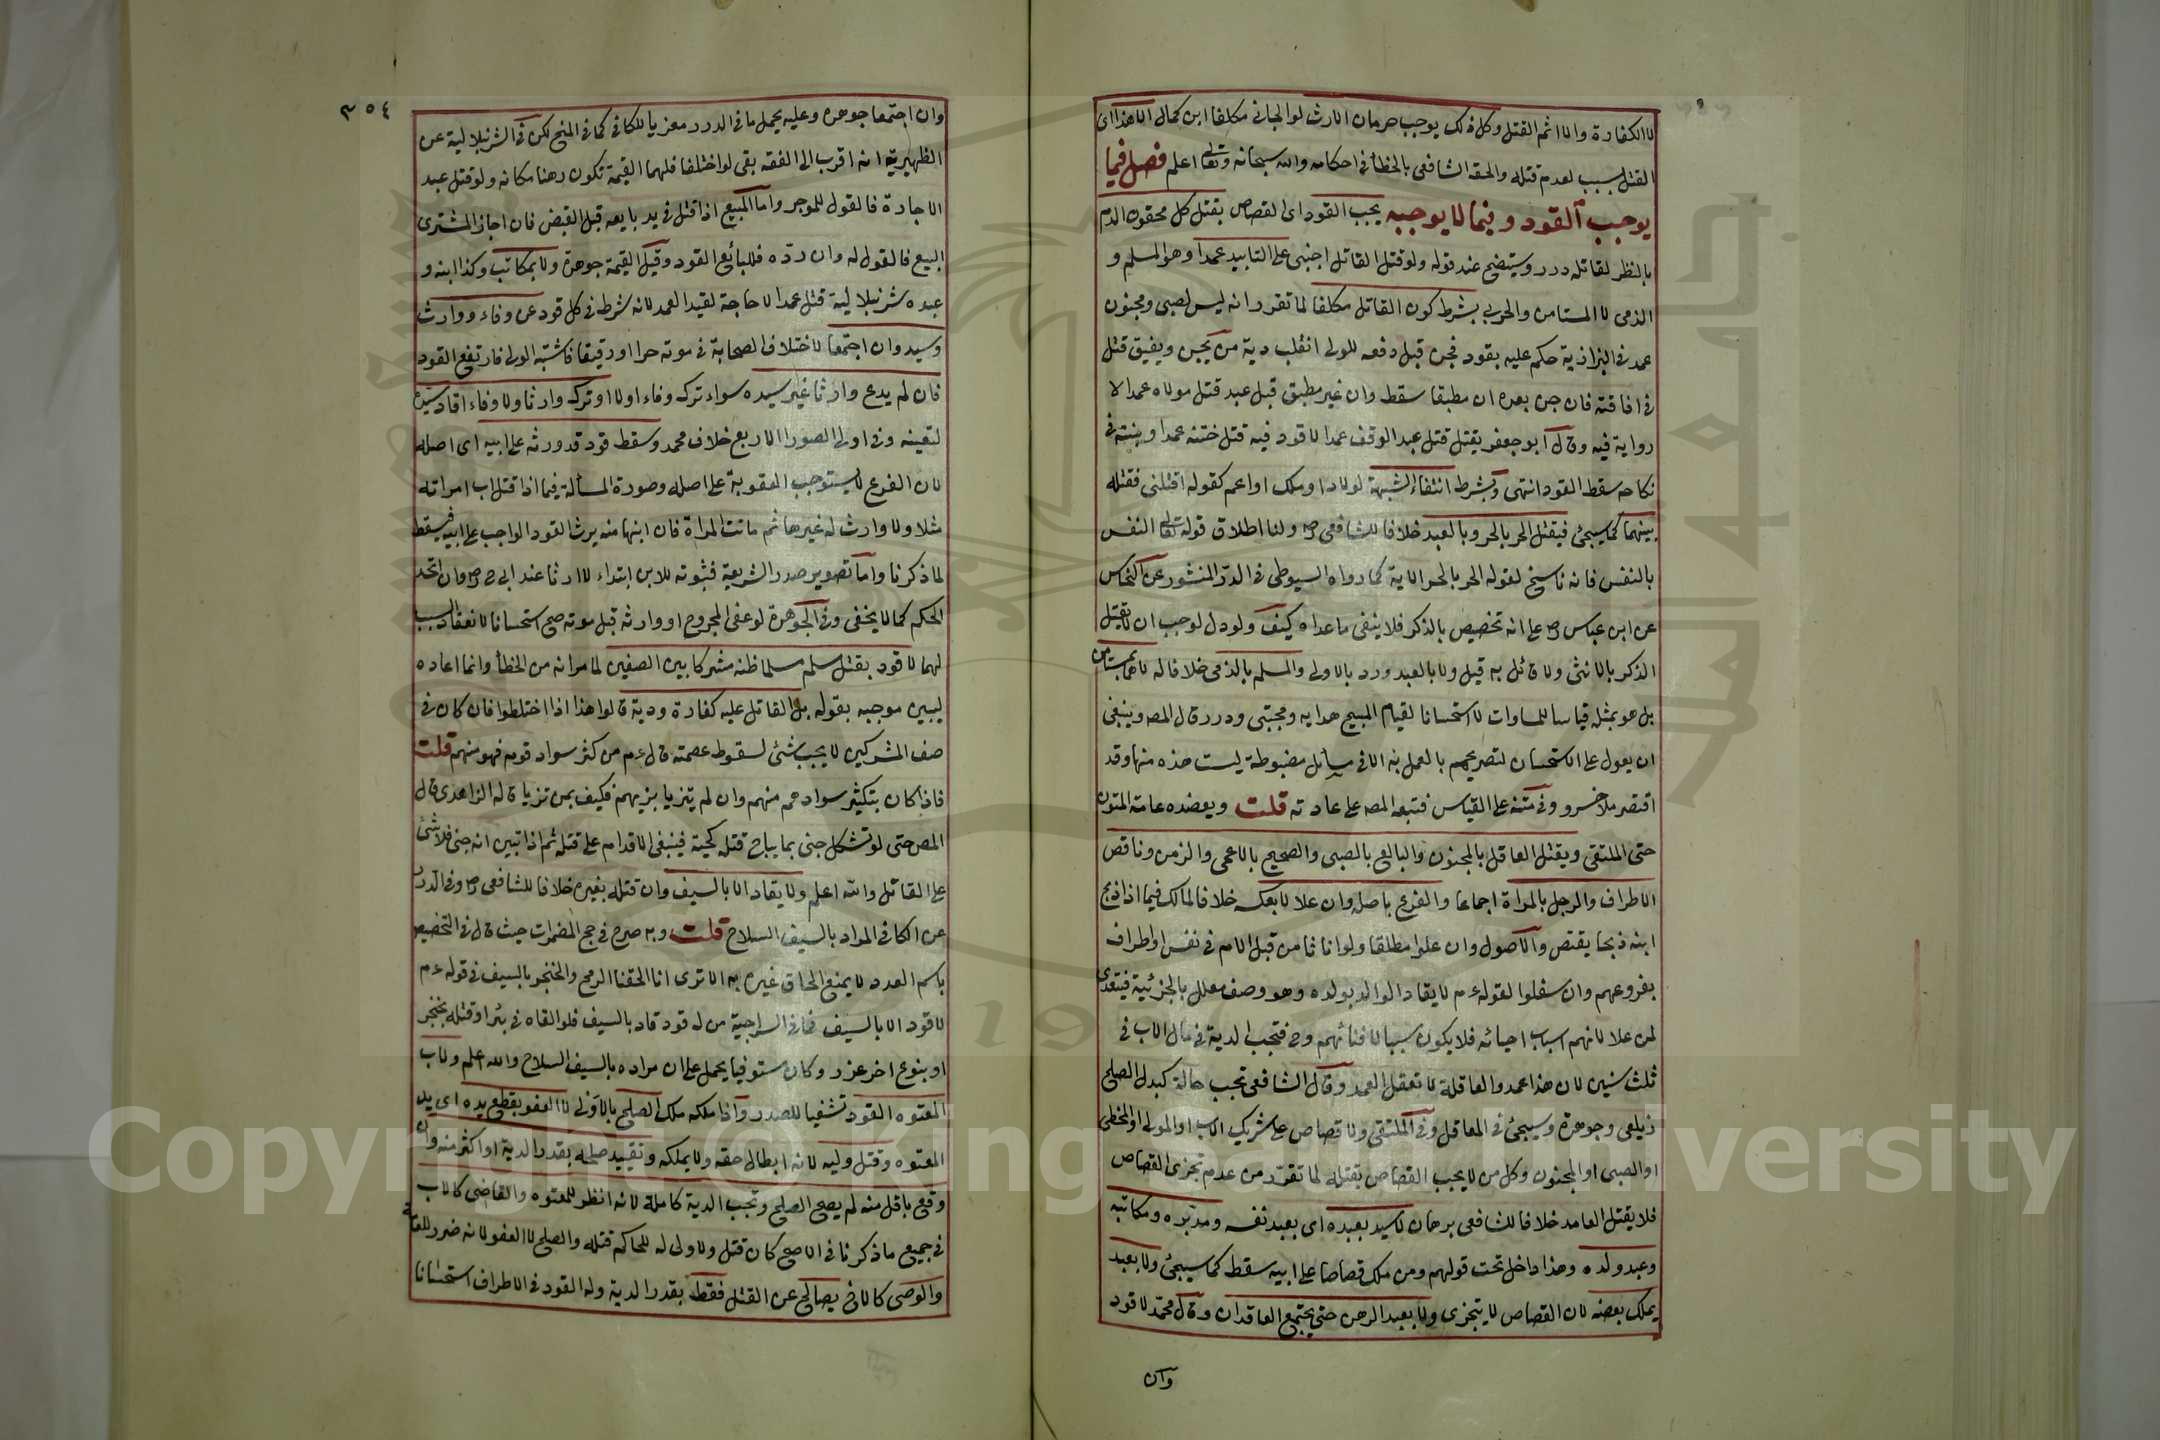 لا الكفارة ولا اثم القتل وكل ذلك يوجب حرمان الارث لو الجاني مكلفا ابن كمال الا هذا اى
القتل بسبب لعدم قتله والحقه الشافعي بالخطأ في احكامه والله سبحانه وتعالى اعلم فصل فيما
يوجب القود وفيما لا يوجبه يجب القود اى القصاص بقتل كل محقون الدم
بالنظر لقاتله درر وسيتضح عند قوله ولو قتل القاتل اجنبى على التابيد عمدا وهو المسلم و
الذمى لا المستامن والحربي بشرط كون القاتل مكلفا لما تقرر انه ليس لصبى ومجنون
عمد في البزازية حكم عليه بقود فجن قبل دفعه للولى انقلب دية من يجن ويفيق قتل
في افاقته فان جن بعده ان مطبقا سقط وان غير مطبق قبل عبد قتل مولاه عمدا لا
رواية فيه وقال ابو جعفر يقتل قتل عبد الوقف عمدا لا قود فيه قتل ختنه عمدا وبنته في
نكاحه سقط القود انتهى وبشرط انتفاء الشبهة لولاد او ملك او اعم كقوله اقتلنى فقتله
بينهما كما سيجئ فيقتل الحر بالحر وبالعبد خلافا للشافعى رح ولنا اطلاق قوله تعالى النفس
بالنفس فانه ناسخ لقوله الحر بالحر الاية كما رواه السيوطى في الدر المنشور عن النحاس
عن ابن عباس رض على انه تخصيص بالذكر فلا ينفى ما عداه كيف ولو دل لوجب ان لا يقتل
الذكر بالانثى ولا قائل به قيل ولا بالعبد ورد بالاولى والمسلم بالذمى خلافا له لا هما بمستامن
بل هو بمثله قياسا للمساوات لا استحسانا لقيام المبيح هدايه ومجتبى ودرر قال المص وينبغى
ان يعول على الاستحسان لتصريحهم بالعمل به الا في مسائل مضبوطة ليست هذه منها وقد
اقتصر ملاخسرو في متنه على القياس فتبعه المص على عادته قلت ويعضده عامة المتون
حتى الملتقى ويقتل العاقل بالمجنون والبالغ بالصبى والصحيح بالاعمى والزمن وناقص
الاطراف والرجل بالمراة اجماعا والفرع باصله وان علا لا بعكسه خلافا لمالك فيما اذا ذبح
ابنه ذبحا يقتص والاصول وان علوا مطلقا ولو اناثا من قبل الام في نفس او اطراف
بفروعهم وان سفلوا لقوله ء م لا يقاد الوالد بولده وهو وصف معلل بالجزئية فيتعدى
لمن علا لانهم اسباب احيائه فلا يكون سببا لافنائهم وح فتجب الدية في مال الاب في
ثلث سنين لان هذا عمد والعاقلة لا تعقل العمد وقال الشافعى تجب حالة كبدل الصلح
زيلعى وجوهرة وسيجئ في المعاقل وفي الملتقى ولا قصاص على شريك الاب او المولى او المخطى
او الصبى او المجنون وكل من لا يجب القصاص بقتله لما تقرر من عدم تجزى القصاص
فلا يقتل العامد خلافا للشافعى برهان لا سيد بعبده اى بعبد نفسه ومدبره ومكاتبه
وعبد ولده وهذا داخل تحت قولهم ومن ملك قصاصا على ابيه سقط كما سيجئ ولا بعبد
يملك بعضه لان القصاص لا يتجزى ولا بعبد الرهن حتى يجتمع العاقدان وقال محمد لا قود
وان
٣٥٤
وان اجتمعا جوهره وعليه يحمل ما في الدرر معزيا للكافى كما في المنح لكن في الشرنبلالية عن
الظهيرية انه اقرب الى الفقه بقى لو اختلفا فلهما القيمة تكون رهنا مكانه ولو قتل عبد
الاجارة فالقول للموجر واما المبيع اذا قتل في يد بايعه قبل القبض فان اجاز المشترى
البيع فالقول له وان رده فللبائع القود وقيل القيمة جوهرة ولا بمكاتب وكذا ابنه و
عبده شرنبلالية قتل عمدا لا حاجة لقيد العمد لانه شرط في كل قود عن وفاء ووارث
وسيد وان اجتمعا لاختلاف الصحابة في موته حرا او رقيقا فاشتبه الولى فارتفع القود
فان لم يدع وارثا غير سيده سواء ترك وفاء اولا او ترك وارثا ولا وفاء اقاد سيده
لتعينه وفي اولى الصور الاربع خلاف محمد وسقط قود قد ورثه على ابيه اى اصله
لان الفرع لا يستوجب العقوبة على اصله وصورة المسألة فيما اذا قتل اب امراته
مثلا ولا وارث له غيرها ثم ماتت المراة فان ابنها منه يرث القود الواجب على ابيه فيسقط
لما ذكرنا واما تصوير صدر الشريعة فثبوته للابن ابتداء لا ارثا عند ابى ح رح وان اتحد
الحكم كما لا يخفى وفي الجوهرة لو عفى المجروح او وارثه قبل موته صح استحسانا لانعقاد السبب
لهما لا قود بقتل مسلم مسلما ظنه مشركا بين الصفين لما مر انه من الخطأ وانما اعاده
ليبين موجبه بقوله بل القاتل عليه كفارة ودية قالوا هذا اذا اختلطوا فان كان في
صف المشركين لا يجب شئ لسقوط عصمته قال ء م من كثر سواد قوم فهو منهم قلت
فاذا كان بتكثير سوادهم منهم وان لم يتزيا بزيهم فكيف بمن تزيا قاله الزاهدى قال
المص حتى لو تشكل جنى بما يباح قتله كحية فينبغى الاقدام على قتله ثم اذا تبين انه جنى فلا شئ
على القاتل والله اعلم ولا يقاد الا بالسيف وان قتله بغيره خلافا للشافعى رح وفي الدرر
عن الكافى المراد بالسيف السلاح قلت وبه صرح في حج المضمرات حيث قال في التخصيص
باسم العدد لا يمنع الحاق غيره به الا ترى انا الحقنا الرمح والخنجر بالسيف في قوله ء م
لا قود الا بالسيف فما في السراجية من له قود قاد بالسيف فلو القاه في بئر او قتله بخنجر
او بنوع اخر عزر وكان مستوفيا يحمل على ان مراده بالسيف السلاح والله اعلم ولاب
المعتوه القود تشفيا للصدر واذا ملكه ملك الصلح بالاولى لا العفو بقطع يده اى يد
المعتوه وقتل وليه لانه ابطال حقه ولا يملكه وتقييد صلحه بقدر الدية او اكثر منه وان
وقع باقل منه لم يصح الصلح وتجب الدية كاملة لانه انظر للمعتوه والقاضى كالاب
في جميع ما ذكرنا في الاصح كان قتل ولا ولى له للحاكم قتله والصلح لا العفو لانه ضرر للعامة
والوصى كالاخ يصالح عن القتل فقط بقدر الدية وله القود في الاطراف استحسانا
Copyright © King Saud University